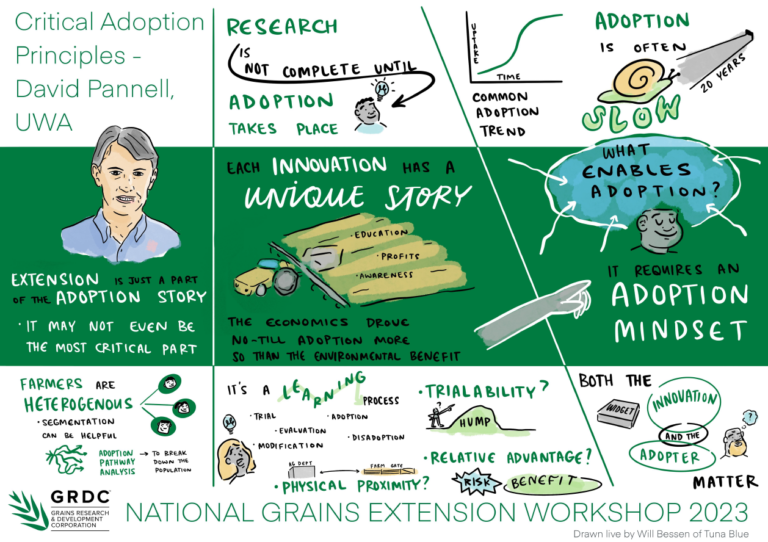 Critical Adoption
Principles -
David Pannell,
UWA
RESEARCH
IS
NOT COMPLETE UNTIL
ADOPTION
TAKES PLACE
UPTAKE
TIME
COMMON
ADOPTION
TREND
ADOPTION
IS OFTEN
SLOW
20 YEARS
EXTENSION IS JUST A PART
OF THE ADOPTION STORY
· IT MAY NOT EVEN BE
THE MOST CRITICAL PART
EACH INNOVATION HAS A
UNIQUE STORY
· EDUCATION
· PROFITS
· AWARENESS
THE ECONOMICS DROVE
NO-TILL ADOPTION MORE
SO THAN THE ENVIRONMENTAL BENEFIT
WHAT
ENABLES
ADOPTION?
IT REQUIRES AN
ADOPTION
MINDSET
FARMERS ARE
HETEROGENOUS
· SEGMENTATION
CAN BE HELPFUL
ADOPTION
PATHWAY
ANALYSIS
→ TO BREAK
DOWN THE
POPULATION
IT'S A LEARNING
PROCESS
· TRIAL
· EVALUATION
· MODIFICATION
· ADOPTION
· DISADOPTION
AG DEPT
FARM GATE
· PHYSICAL PROXIMITY?
· TRIALABILITY?
HUMP
· RELATIVE ADVANTAGE?
RISK
BENEFIT
BOTH THE
WIDGET
INNOVATION
AND THE
ADOPTER
?
MATTER
GRDC
GRAINS RESEARCH
& DEVELOPMENT
CORPORATION
NATIONAL GRAINS EXTENSION WORKSHOP 2023
Drawn live by Will Bessen of Tuna Blue